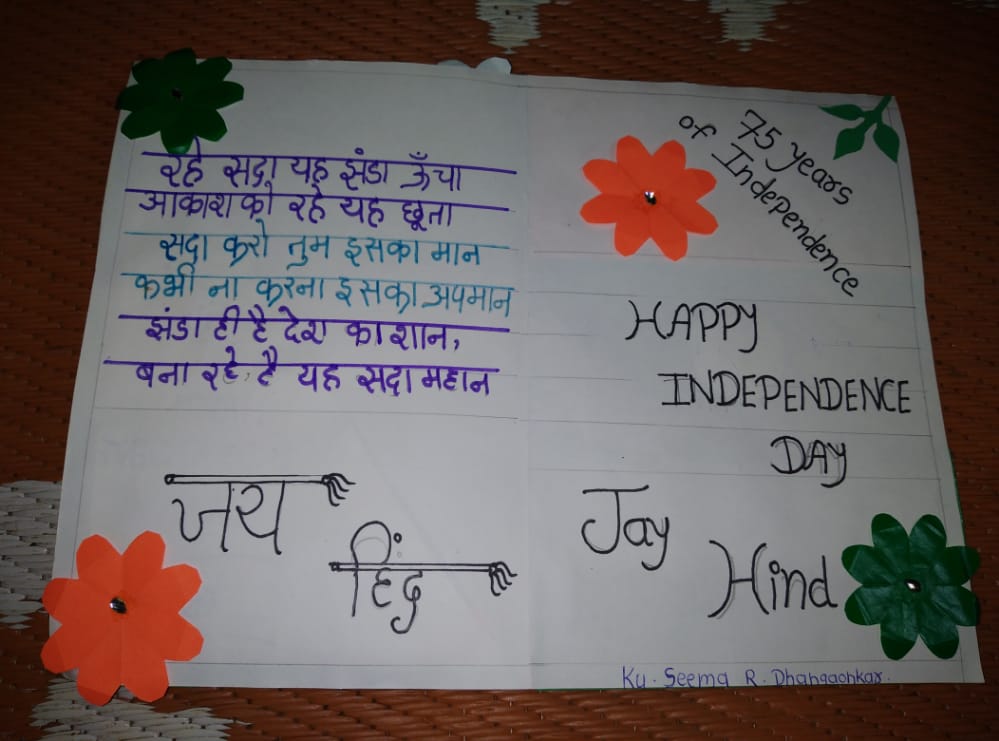 रहे सदा यह झंडा ऊँचा
आकाश को रहे यह छूता
सदा करो तुम इसका मान
कभी ना करना इसका अपमान
झंडा ही है देश का शान,
बना रहे है यह सदा महान
जय
हिंद
75 years
of Independence
HAPPY
INDEPENDENCE
DAY
Jay
Hind
Ku. Seema R. Dhangaonkar.